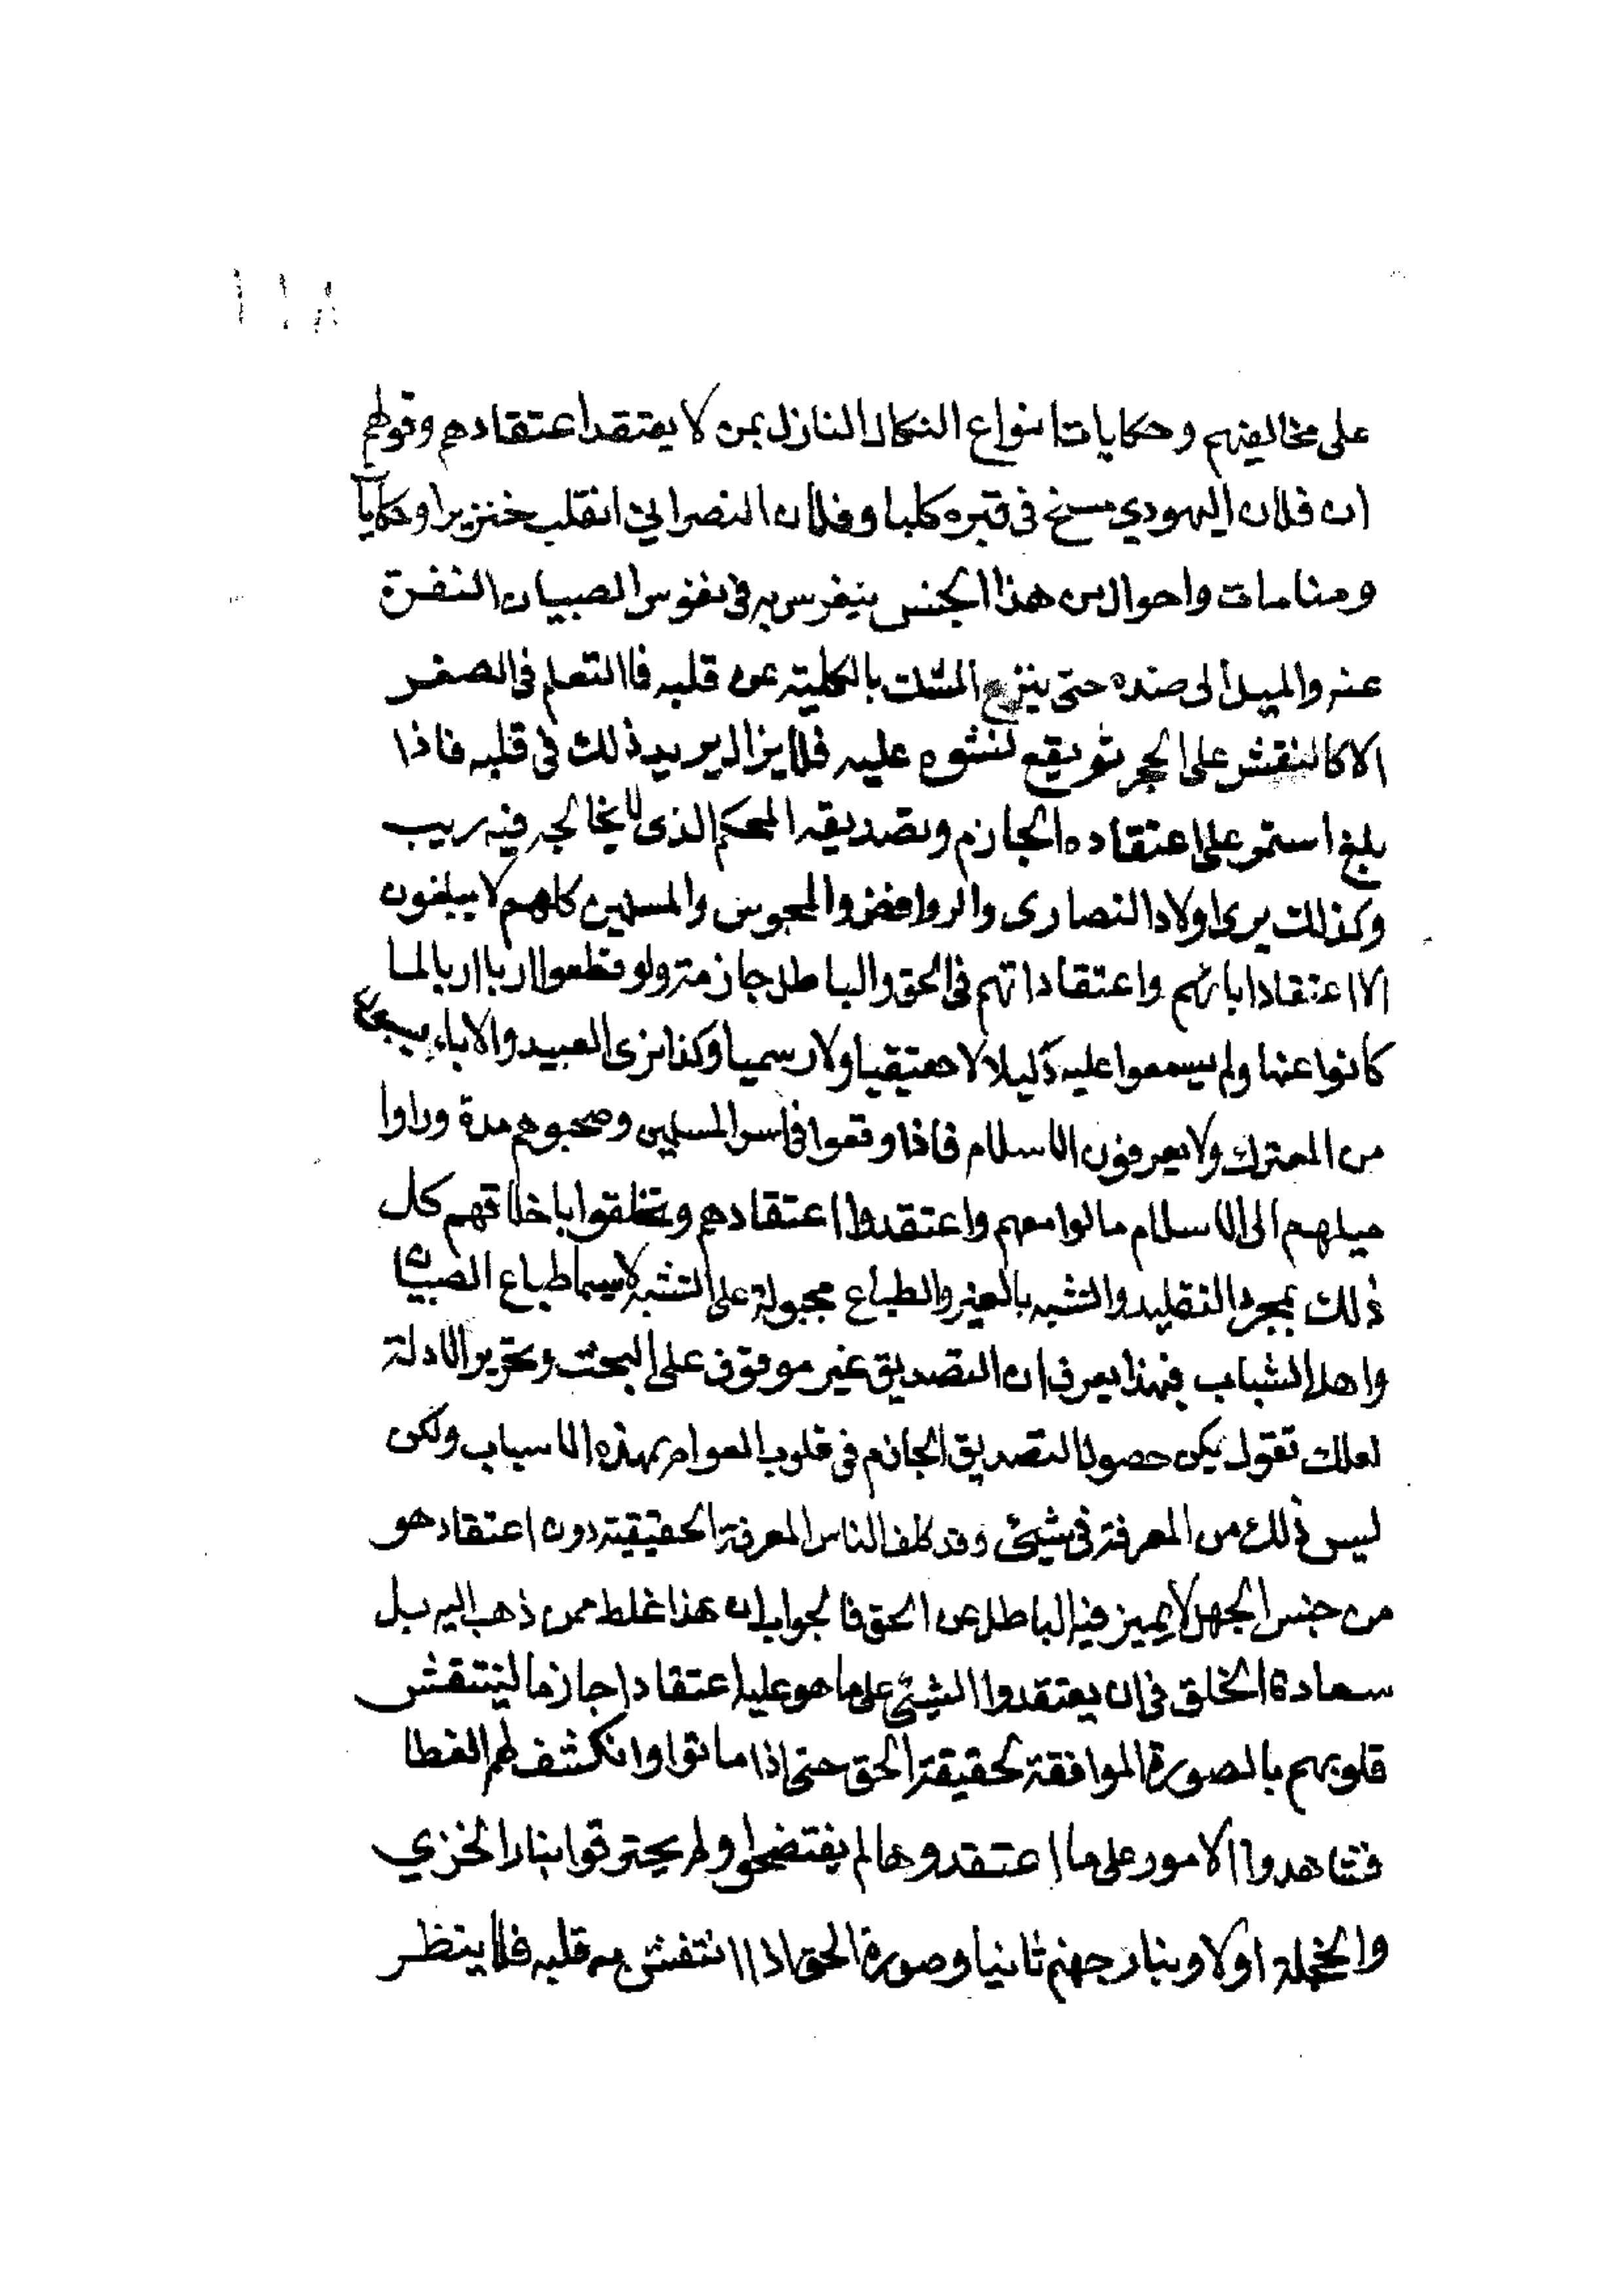 ١١٨
على مخالفيهم وحكايات انواع النكال النازل بمن لا يعتقد اعتقادهم وقولهم
ان فلان اليهودي مسخ في قبره كلبا وفلان النصراني انقلب خنزيرا وحكايا
ومنامات واحوال من هذا الجنس ينغرس به في نفوس الصبيان النفرة
عنه والميل الى ضده حتى ينزع الشك بالكلية عن قلبه فاالتعلم في الصغر
الا كالنقش على الحجر ثم يقع نشوه عليه فلا يزال يربيد ذلك في قلبه فاذا
بلغ استمر على اعتقاده الجازم وتصديقه المحكم الذى لا يخالجه فيه ريب
وكذلك يرى اولاد النصارى والروافض والمجوس والمسلمين كلهم لا يبلغون
الا اعتقاد ابائهم واعتقاداتهم في الحق والباطل جازمة ولو قطعوا اربا اربا لما
كانوا عنها ولم يسمعوا عليه دليلا لا حقيقيا ولا رسميا وكذا نرى العبيد والاباء
من المعترك ولا يعرفون الاسلام فاذا وقعوا في اسر المسلمين وصحبوهم مدة وراوا
ميلهم الى الاسلام مالوا معهم واعتقدوا اعتقادهم وتخلقوا باخلاقهم كل
ذلك بمجرد التقليد والتشبه بالغير والطباع مجبولة على التشبه لا سيما طباع الصبيان
واهل الشباب فبهذا يعرف ان التصديق غير موقوف على البحث وتحرير الادلة
لعلك تقول يكن حصول التصديق الجازم في قلوب العوام بهذه الاسباب ولكن
ليس ذلك من المعرفة في شيئ وقد كلف الناس المعرفة الحقيقية دون اعتقاد هو
من جنس الجهل لا يميز فيه الباطل عن الحق فالجواب ان هذا غلط ممن ذهب اليه بل
سعادة الخلق في ان يعتقدوا الشيئ على ما هو عليه اعتقادا جازما لينتقش
قلوبهم بالصورة الموافقة لحقيقة الحق حتى اذا ماتوا وانكشف لهم الغطا
فشاهدوا الامور على ما اعتقدوها لم يفتضحوا ولم يحترقوا بنار الخزي
والخجلة اولا وبنار جهنم ثانيا وصورة الحق اذا انتقش به قلبه فلا ينظر